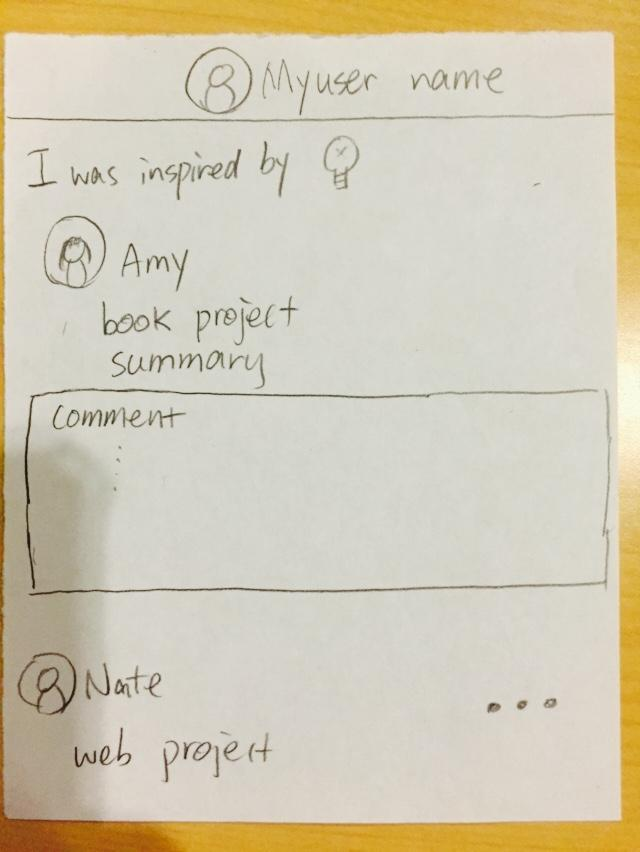 Myuser name
I was inspired by
Amy
book project
summary
comment
Nate
web project